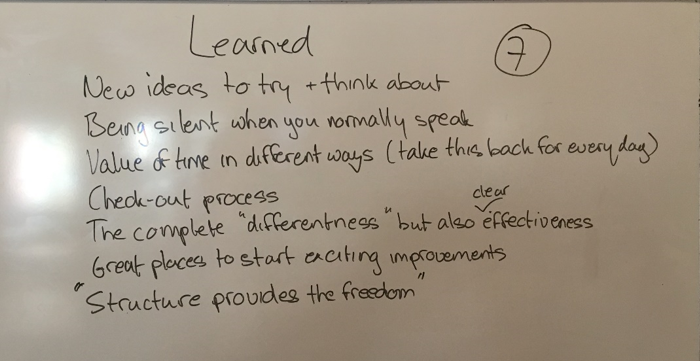 Learned
7
New ideas to try + think about
Being silent when you normally speak
Value of time in different ways (take this back for every day)
Check-out process
clear
The complete "differentness" but also effectiveness
Great places to start exciting improvements
"Structure provides the freedom"